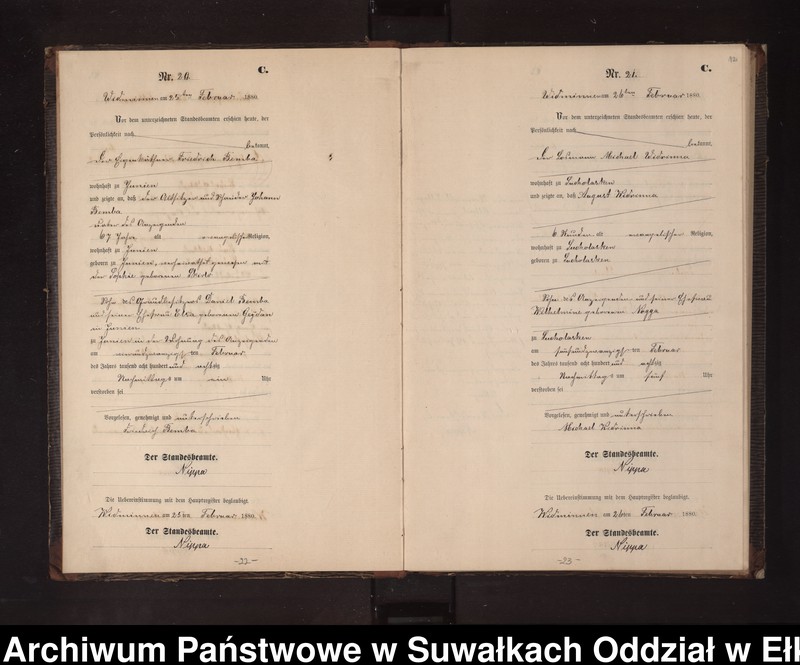 C.
Nr. 20.
Widminnen am 25ten Februar 1880.
Vor dem unterzeichneten Standesbeamten erschien heute, der
Persönlichkeit nach
bekannt,
der Eigenkäthner Friedrich Bemba
wohnhaft zu
und zeigte an, daß der Altsitzer und Johann
Bemba
Vater des Anzeigenden
67 Jahre alt, evangelischer Religion,
wohnhaft zu
geboren zu verheirathet gewesen mit
der Sophie geborenen
Sohn des Grundbesitzers Daniel Bemba
und seiner Ehefrau geborenen
in
zu in der Wohnung des Anzeigenden
am Februar
des Jahres tausend acht hundert und achtzig
Nachmittags um ein Uhr
verstorben sei
Vorgelesen, genehmigt und unterschrieben
Friedrich Bemba
Der Standesbeamte.
Nippa
Die Uebereinstimmung mit dem Hauptregister beglaubigt.
Widminnen am 25ten Februar 1880.
Der Standesbeamte.
Nippa
-22-
C.
Nr. 21.
Widminnen am 26ten Februar 1880.
Vor dem unterzeichneten Standesbeamten erschien heute, der
Persönlichkeit nach
bekannt,
der Losmann Michael Widrinna
wohnhaft zu Sucholasken
und zeigte an, daß August Widrinna
6 Stunden alt, evangelischer Religion,
wohnhaft zu Sucholasken
geboren zu Sucholasken
Sohn des Anzeigenden und seiner Ehefrau
Wilhelmine geborenen Rogga
zu Sucholasken
am fünfundzwanzigsten Februar
des Jahres tausend acht hundert und achtzig
Nachmittags um fünf Uhr
verstorben sei
Vorgelesen, genehmigt und unterschrieben
Michael Widrinna
Der Standesbeamte.
Nippa
Die Uebereinstimmung mit dem Hauptregister beglaubigt.
Widminnen am 26ten Februar 1880.
Der Standesbeamte.
Nippa
-23-
Archiwum Państwowe w Suwałkach Oddział w Eł